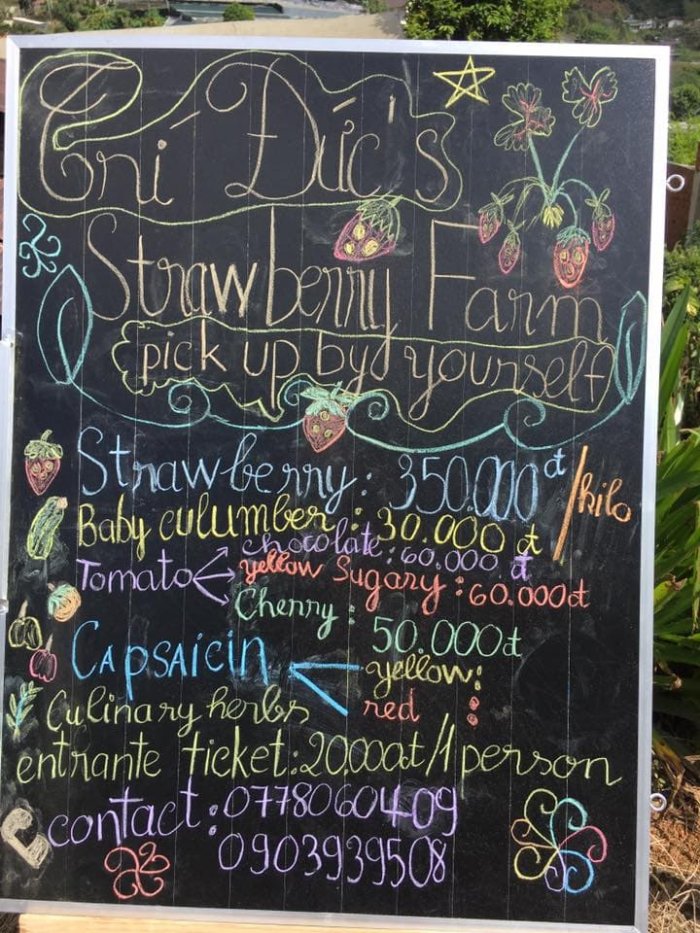 Trí Đức's
Strawberry Farm
pick up by yourself
Strawberry: 350.000đ/kilo
Baby culumber: 30.000đ
Tomato chocolate: 60.000đ
yellow Sugary: 60.000đ
Cherry: 50.000đ
CAPSAICIN yellow:
red :
Culinary herbs
entrante ticket: 20.000đ/1 person
contact: 0778060409
0903939508